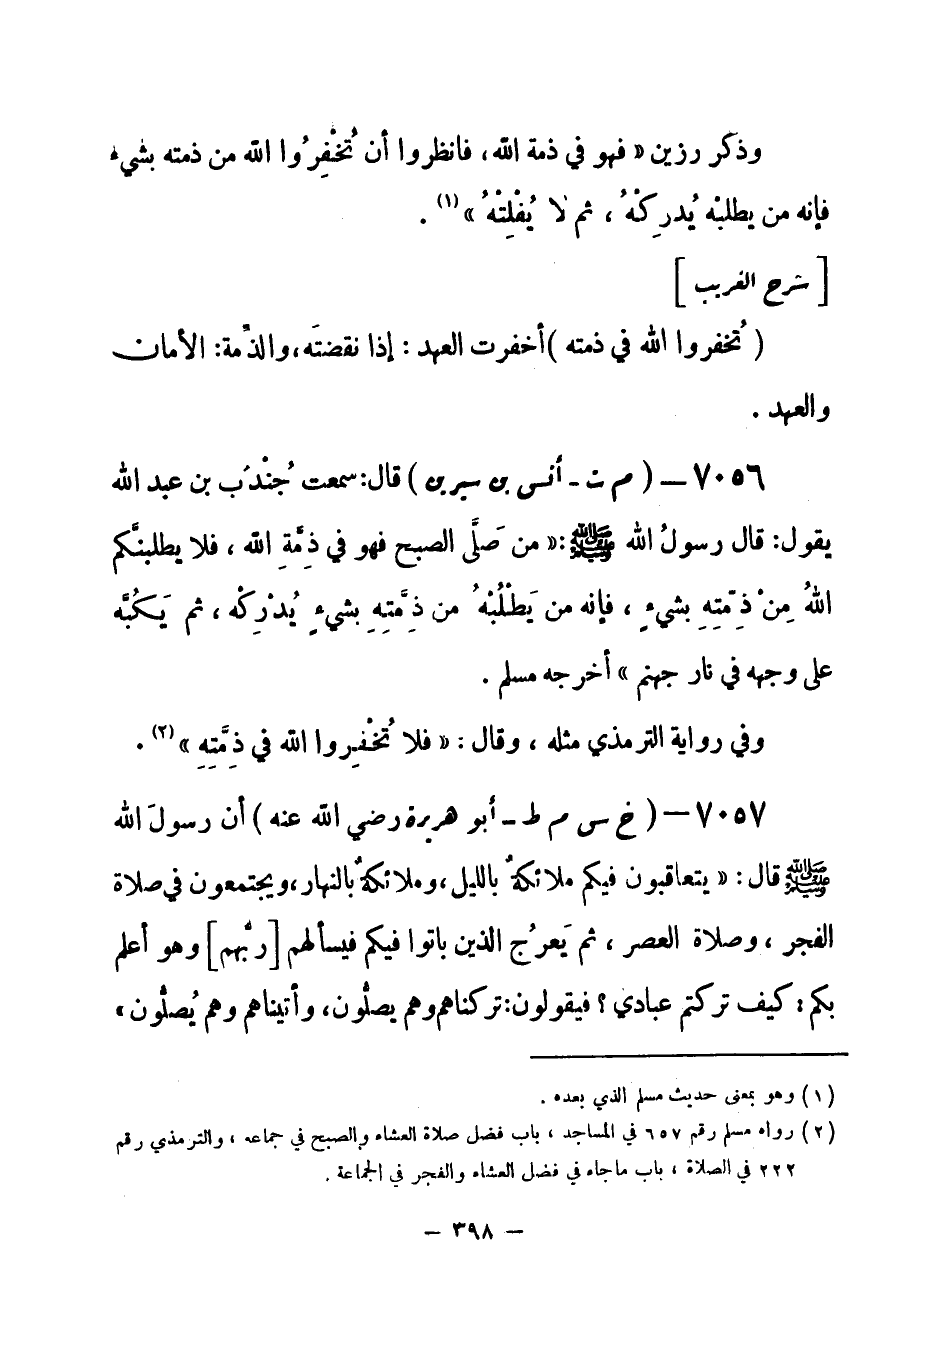 وذكر رزين « فهو في ذمة الله ، فانظروا أن تُخْفِرُوا الله من ذمته بشيء
فإنه من يطلبْه يُدرِكْهُ ، ثم لا يُفْلِتْهُ »(١) .
[ شرح الغريب ]
( تُخفروا الله في ذمته )أخفرت العهد : إذا نقضتَه،والذِّمة: الأمان
والعهد .
٧٠٥٦ — ( م ت - أنس بن سيرين ) قال:سمعت جُنْدَب بن عبد الله
يقول: قال رسولُ الله ﷺ:« من صَلَّى الصبح فهو في ذِمَّةِ الله ، فلا يطلبنَّكم
اللهُ مِنْ ذِمّتِهِ بشيءٍ ، فإنه من يَطْلُبْهُ من ذِمَّتِهِ بشيءٍ يُدْرِكْه ، ثم يَكُبَّه
على وجهه في نار جهنم » أخرجه مسلم .
وفي رواية الترمذي مثله ، وقال : « فلا تُخْفِروا الله في ذِمَّتِهِ »(٢) .
٧٠٥٧ — ( خ س م ط - أبو هريرة رضي الله عنه ) أن رسولَ الله
ﷺ قال : « يتعاقبون فيكم ملائكةٌ بالليل ،وملائكةٌ بالنهار ،ويجتمعون في صلاة
الفجر ، وصلاة العصر ، ثم يَعرُج الذين باتوا فيكم فيسألهم [ربُّهم] وهو أعلم
بكم : كيف تركتم عبادي ؟ فيقولون:تركناهم وهم يصلُّون، وأتيناهم وهم يُصلُّون ،
(١) وهو بمعنى حديث مسلم الذي بعده .
(٢) رواه مسلم رقم ٦٥٧ في المساجد ، باب فضل صلاة العشاء والصبح في جماعه ، والترمذي رقم
٢٢٢ في الصلاة ، باب ماجاء في فضل العشاء والفجر في الجماعة .
— ٣٩٨ —